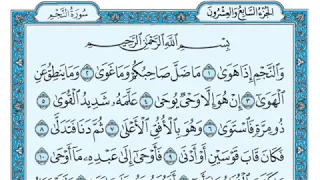 الجزء السابع والعشرون سورة النجم
بِسْمِ ٱللَّهِ ٱلرَّحْمَٰنِ ٱلرَّحِيمِ
وَٱلنَّجْمِ إِذَا هَوَىٰ ١ مَا ضَلَّ صَاحِبُكُمْ وَمَا غَوَىٰ ٢ وَمَا يَنطِقُ عَنِ
ٱلْهَوَىٰ ٣ إِنْ هُوَ إِلَّا وَحْىٌ يُوحَىٰ ٤ عَلَّمَهُۥ شَدِيدُ ٱلْقُوَىٰ ٥
ذُو مِرَّةٍ فَٱسْتَوَىٰ ٦ وَهُوَ بِٱلْأُفُقِ ٱلْأَعْلَىٰ ٧ ثُمَّ دَنَا فَتَدَلَّىٰ ٨
فَكَانَ قَابَ قَوْسَيْنِ أَوْ أَدْنَىٰ ٩ فَأَوْحَىٰٓ إِلَىٰ عَبْدِهِۦ مَآ أَوْحَىٰ ١٠